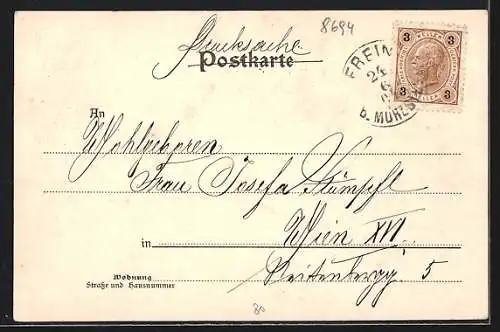 8694
Drucksache
Postkarte
3 HELLER 3
3 HELLER 3
FREIN
24
6
b. MÜRZST
An
Wohlgeboren
Frau Josefa Stümpfl
in Wien XVI
5
Wohnung
Straße und Hausnummer
80